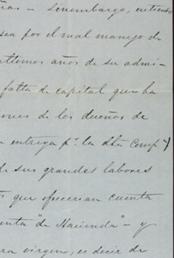 ras - Sinembargo, entiendo
sea por el mal manejo de
ultimos años de su admi-
falta de capital que ha
ones de los dueños de
entrega pr. la dha Comp
de sus grandes labores
que ofrecerian cuenta
enta "de Hacienda" - y
ra virgen, es decir de